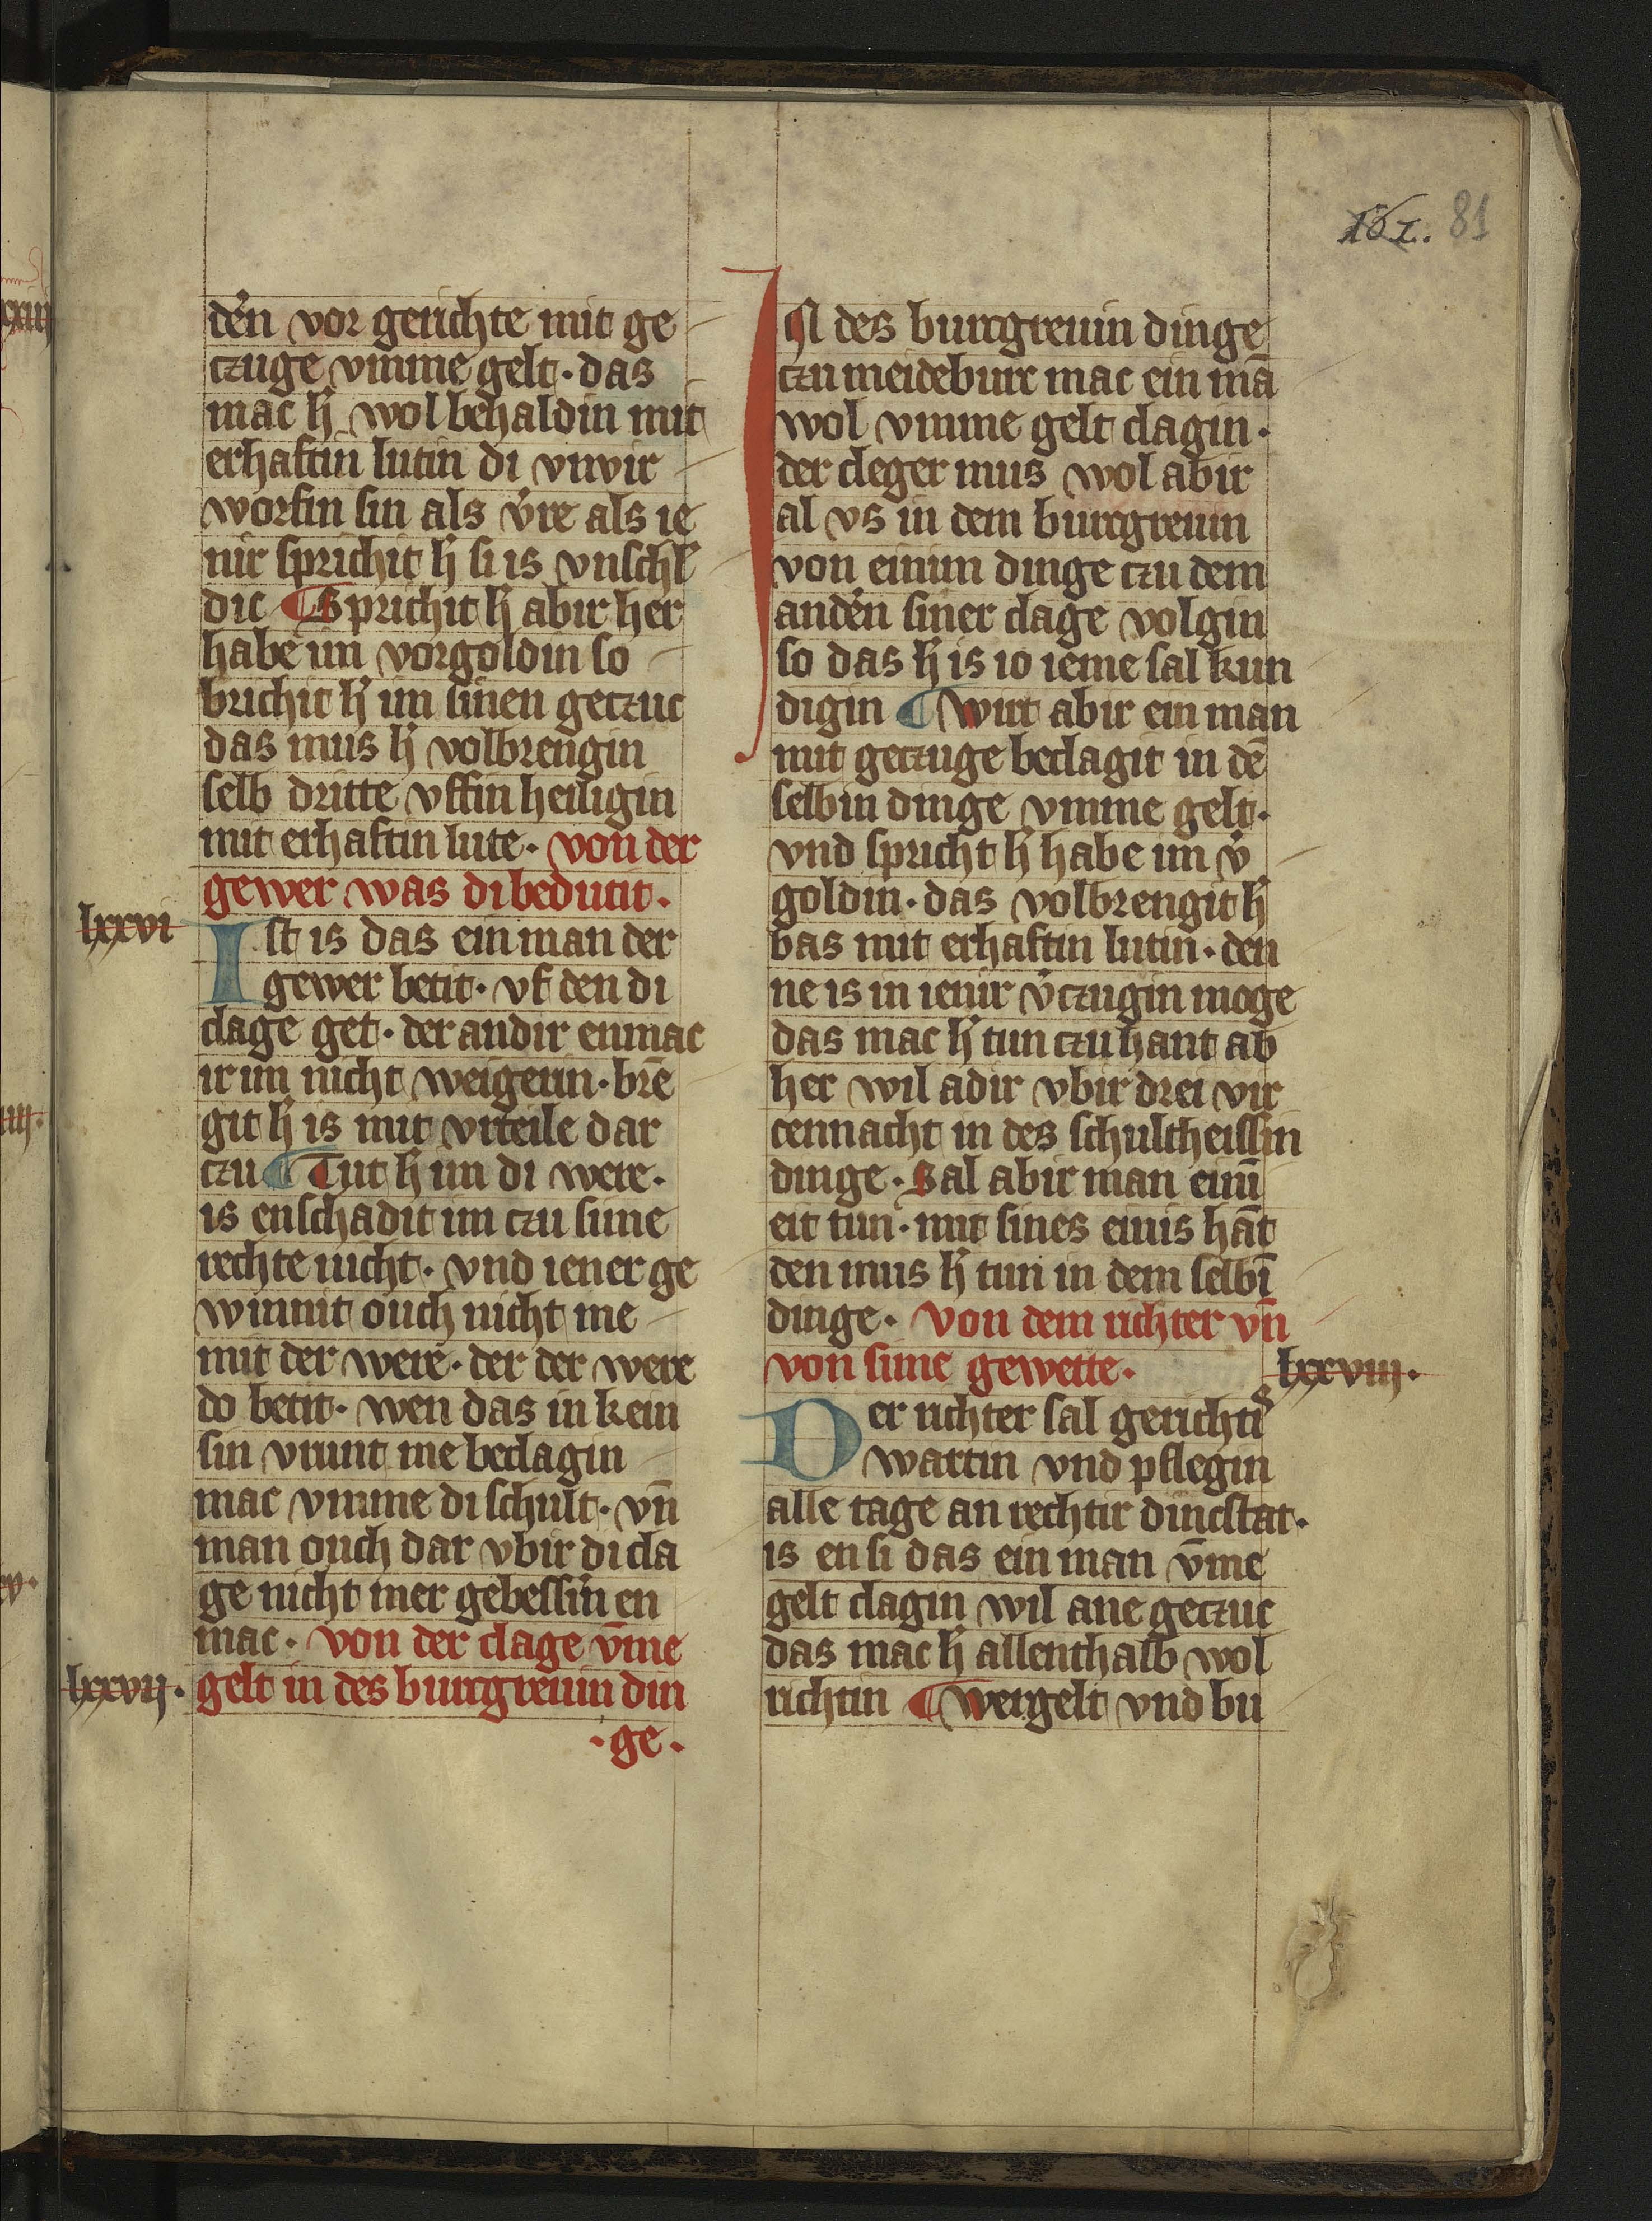 161. 81
den vor gerichte mit ge
czuge vmme gelt · das
mac h̾ wol behaldin mit
erhaftin lutin di vnvir
worfin sin als v̾re als ie
nir sprichit h̾ si is vnschl̾
dic ¶ Sprichit h̾ abir her
habe im vorgoldin so
brichit h̾ im sinen geczuc
das mus h̾ volbrengin
selb dritte vffin heiligin
mit erhaftin lute · von der
gewer was di bedutit ·
lxxvi
Ist is das ein man der
gewer betit · vf den di
clage get · der andir enmac
ir im nicht weigerin · brē
git h̾ is mit vrteile dar
czu ¶ Tut h̾ im di were ·
is enschadit im czu sime
rechte nicht · vnd iener ge
winnit ouch nicht me
mit der were · der der were
do betit · wen das in kein
sin vrunt me beclagin
mac vmme di schult · vn̄
man ouch dar vbir di cla
ge nicht mer gebessin̾ en
mac · von der clage v̄me
lxxvij · gelt in des burcgreuin din
· ge ·
IN des burcgreuin dinge
czu meideburc mac ein mā
wol vmme gelt clagin ·
der cleger mus wol abir
al vs in dem burcgreuin
von einim dinge czu dem
anden̾ siner clage volgin
so das h̾ is io ieme sal kun
digin ¶ Wirt abir ein man
mit geczuge beclagit in dē
selbin dinge vmme gelt ·
vnd spricht h̾ habe im v̾
goldin · das volbrengit h̾
bas mit erhaftin lutin · den
ne is in ienir v̾czugin moge
das mac h̾ tun czu hant ab
her wil adir vbir drei vir
cennacht in des schultheissin
dinge · Sal abir man einī
eit tun · mit sines einis hāt
den mus h̾ tun in dem selbī
dinge · Von dem richter vn̄
von sime gewette ·
lxxviij ·
Der richter sal gerichtis
wartin vnd pflegin
alle tage an rechtir dincstat ·
is en si das ein man v̄me
gelt clagin wil ane geczuc
das mac h̾ allenthalb wol
richtin ¶ Wergelt vnd bu